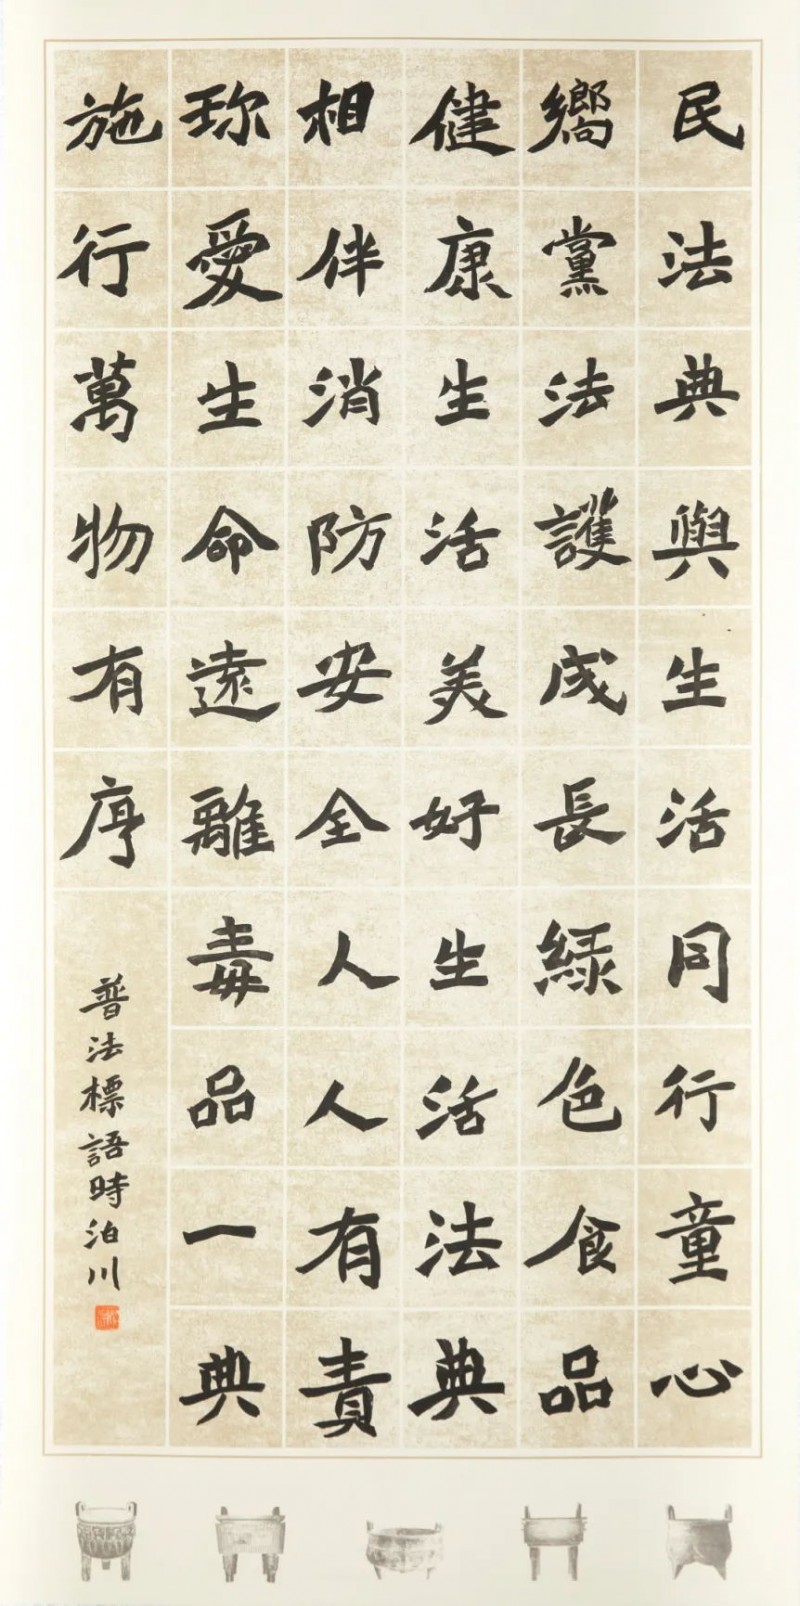 民法典與生活同行童心
嚮黨法護成長綠色食品
健康生活美好生活法典
相伴消防安全人人有責
珎愛生命遠離毒品一典
施行萬物有序
普法標語時泊川